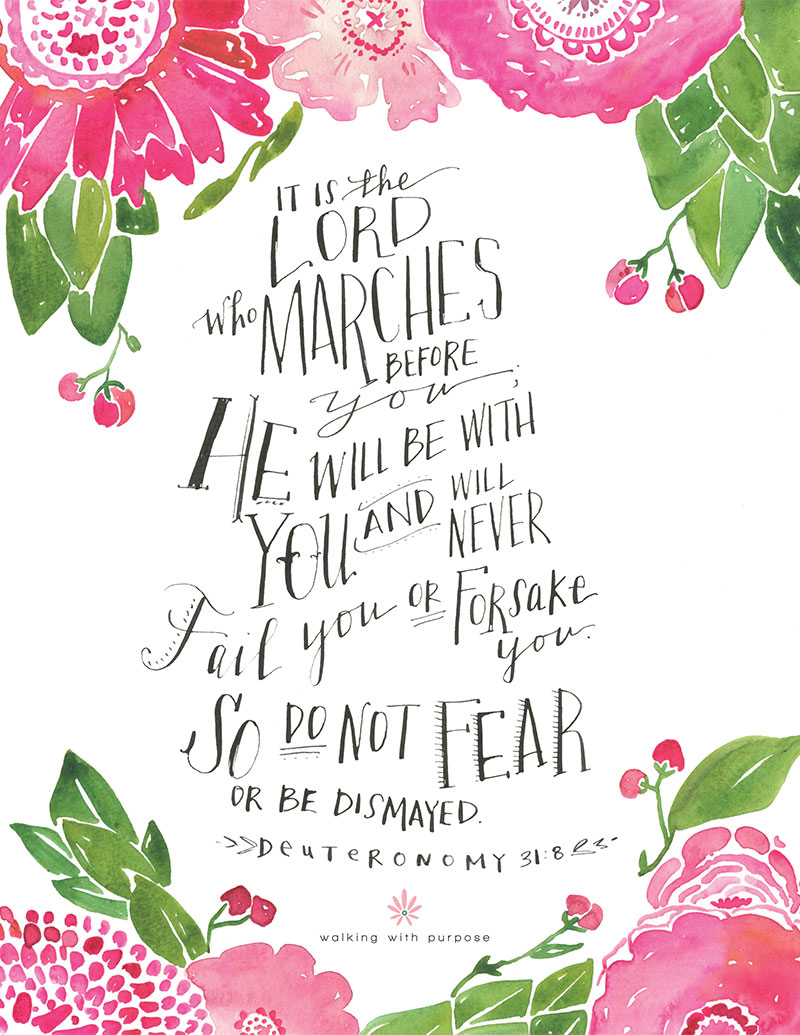 IT IS the
LORD
who MARCHES
BEFORE
you;
HE WILL BE WITH
YOU AND WILL
NEVER
Fail you OR FORSake
you.
SO DO NOT FEAR
OR BE DISMAYED.
DeuTeRONOMY 31:8
walking with purpose